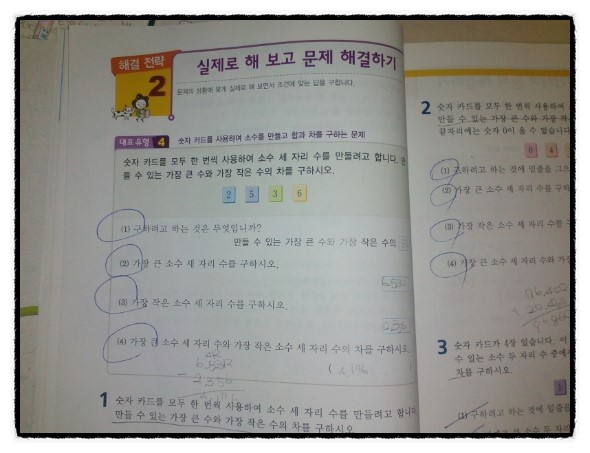 해결 전략
2
실제로 해 보고 문제 해결하기
문제의 상황에 맞게 실제로 해 보면서 조건에 맞는 답을 구합니다.
대표 유형 4 숫자 카드를 사용하여 소수를 만들고 합과 차를 구하는 문제
숫자 카드를 모두 한 번씩 사용하여 소수 세 자리 수를 만들려고 합니다. 만
들 수 있는 가장 큰 수와 가장 작은 수의 차를 구하시오.
2 5 3 6
(1) 구하려고 하는 것은 무엇입니까?
만들 수 있는 가장 큰 수와 가장 작은 수의
(2) 가장 큰 소수 세 자리 수를 구하시오.
6.532
(3) 가장 작은 소수 세 자리 수를 구하시오.
2.356
(4) 가장 큰 소수 세 자리 수와 가장 작은 소수 세 자리 수의 차를 구하시오.
6.532
- 2.356
1 숫자 카드를 모두 한 번씩 사용하여 소수 세 자리 수를 만들려고 합니다
만들 수 있는 가장 큰 수와 가장 작은 수의
2 숫자 카드를 모두 한 번씩 사용하여
만들 수 있는 가장 큰 수와 가장
끝자리에는 숫자 0이 올 수 없습니다
0 4
(1) 구하려고 하는 것에 밑줄을 그으
(2) 가장 큰 소수 세 자리 수를
(3) 가장 작은 소수 세 자리
(4) 가장 큰 소수 세 자리 수와 가
3 숫자 카드가 4장 있습니다.
수 있는 소수 두 자리 수 중에서
차를 구하시오.
1
(1) 구하려고 하는 것에 밑줄